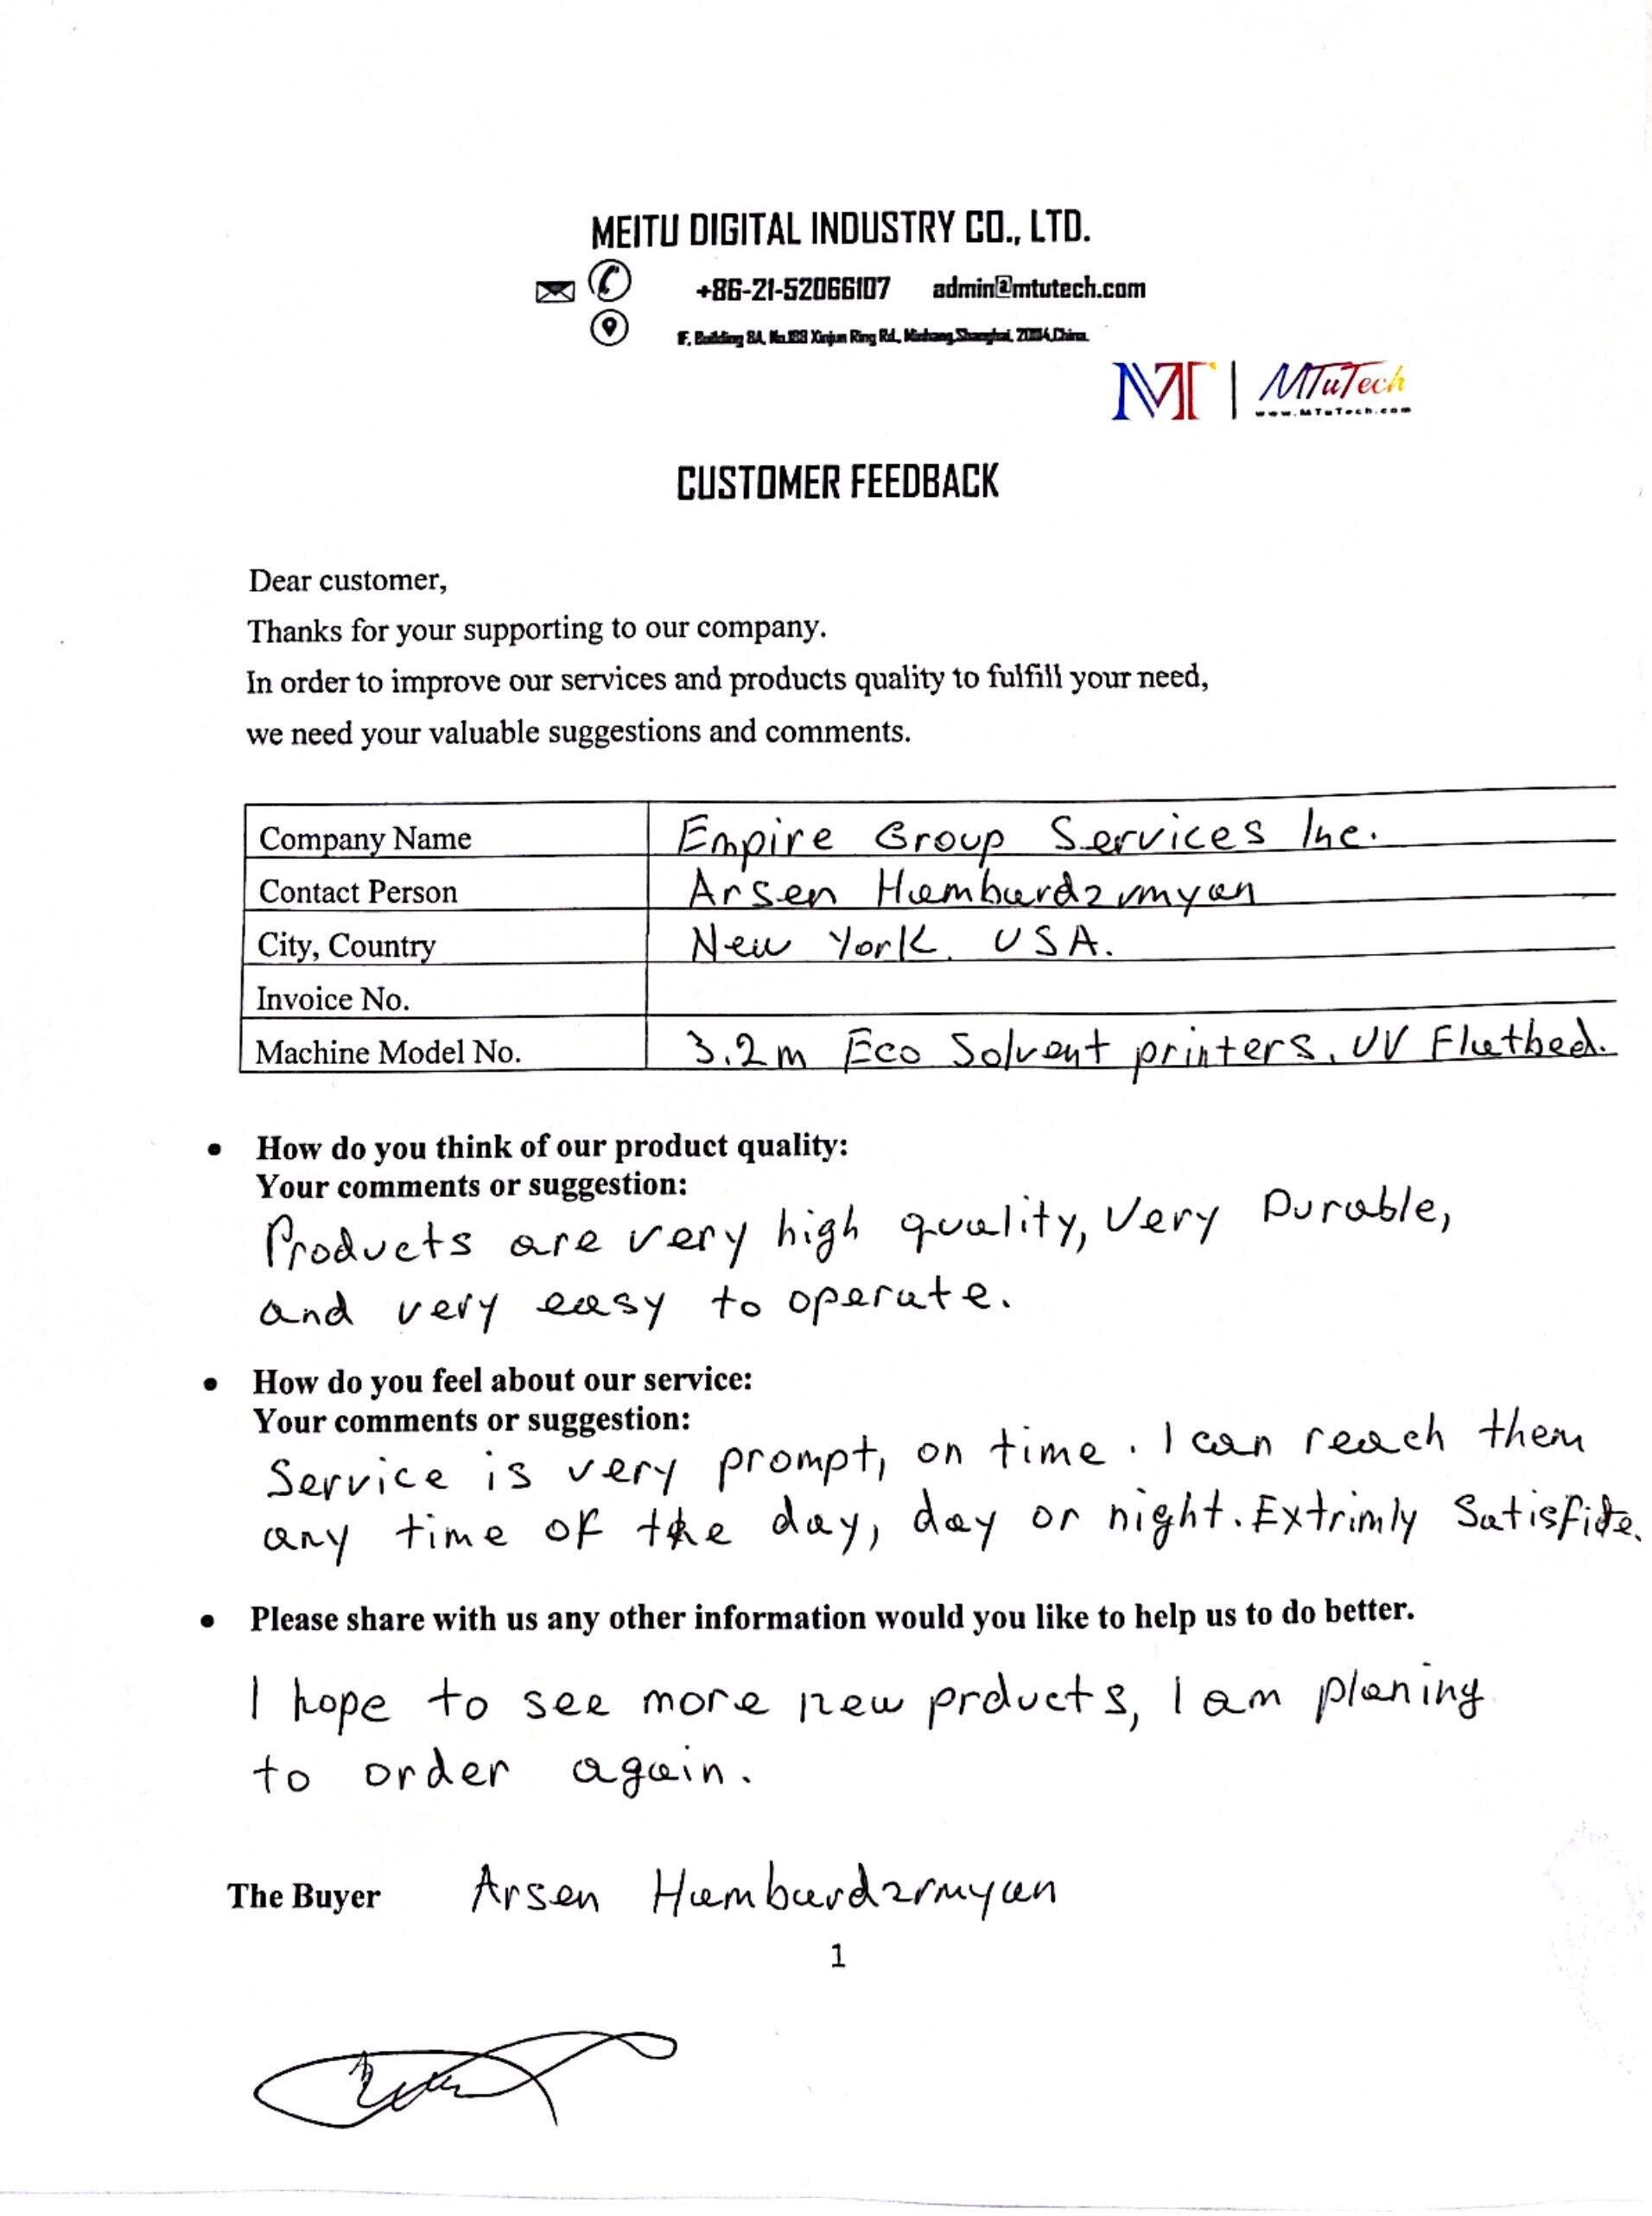 MEITU DIGITAL INDUSTRY CO., LTD.
+86-21-52066107 admin@mtutech.com
1F, Building 8A, No.188 Xinjun Ring Rd., Minhang, Shanghai, China.
MT | MTuTech
www.MTuTech.com
CUSTOMER FEEDBACK
Dear customer,
Thanks for your supporting to our company.
In order to improve our services and products quality to fulfill your need,
we need your valuable suggestions and comments.
Company Name Empire Group Services Inc.
Contact Person Arsen
City, Country New York. USA.
Invoice No.
Machine Model No. 3.2m Eco Solvent printers. UV Flatbed.
• How do you think of our product quality:
Your comments or suggestion:
Products are very high quality, Very Durable,
and very easy to operate.
• How do you feel about our service:
Your comments or suggestion:
Service is very prompt, on time. I can reach them
any time of the day, day or night. Extrimly Satisfide.
• Please share with us any other information would you like to help us to do better.
I hope to see more new prducts, I am planing
to order again.
The Buyer Arsen
1